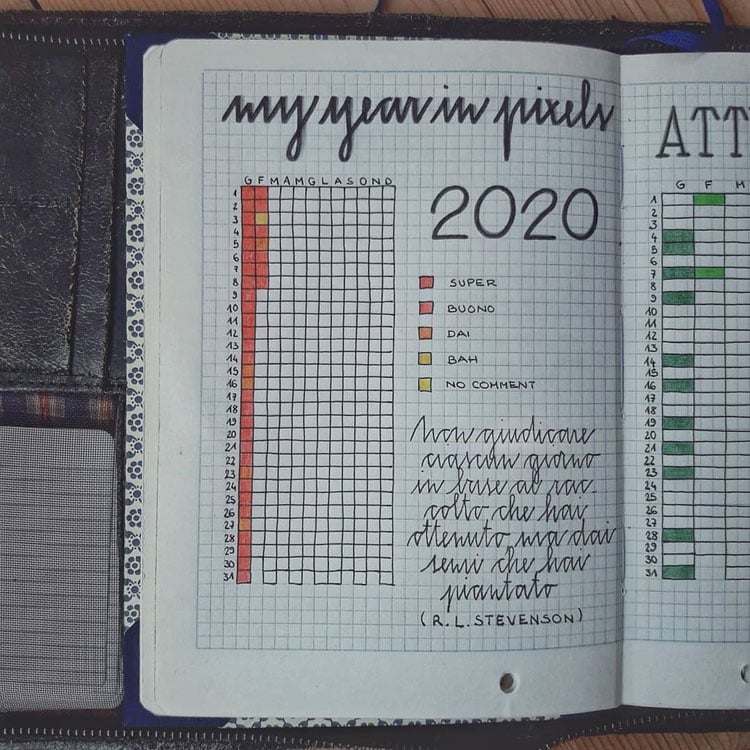 my year in pixels
2020
G F M A M G L A S O N D
1
2
3
4
5
6
7
8
9
10
11
12
13
14
15
16
17
18
19
20
21
22
23
24
25
26
27
28
29
30
31
SUPER
BUONO
DAI
BAH
NO COMMENT
Non giudicare
ciascun giorno
in base al rac-
colto che hai
ottenuto, ma dai
semi che hai
piantato
(R. L. STEVENSON)
ATT
G F M
1
2
3
4
5
6
7
8
9
10
11
12
13
14
15
16
17
18
19
20
21
22
23
24
25
26
27
28
29
30
31